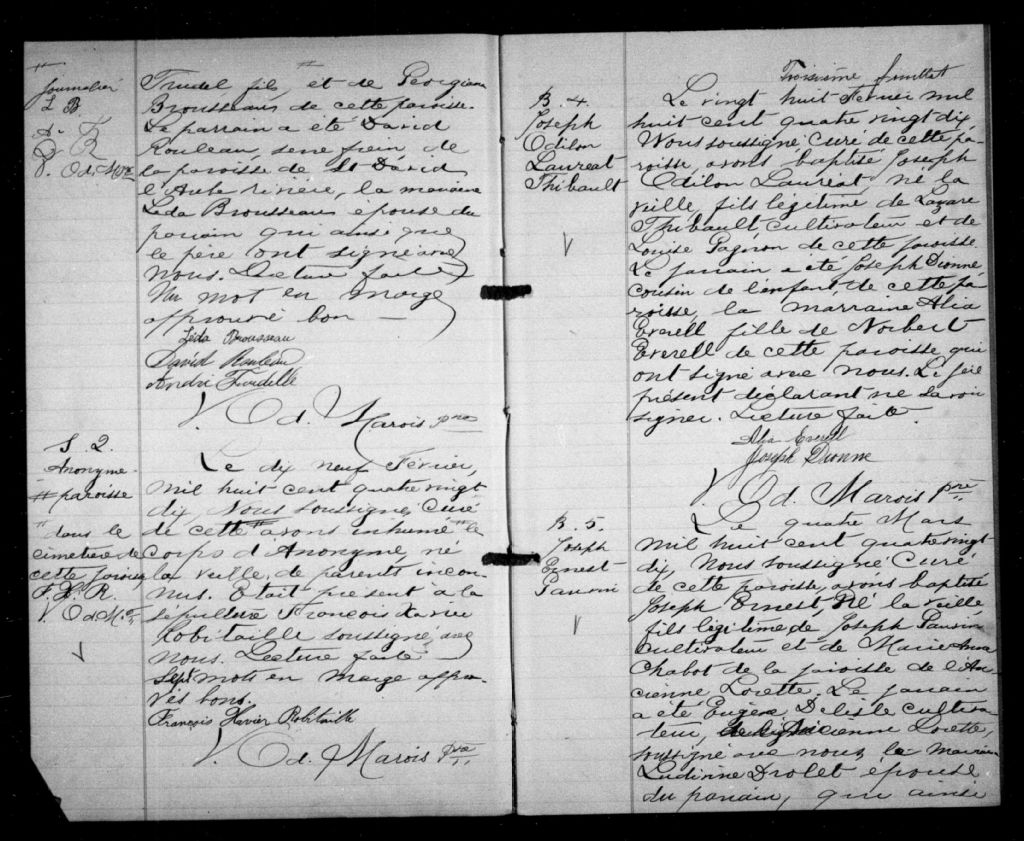 Journalier
L B
D. R
V. Od. M Ptre
Trudel fils, et de Georgiana
Brousseau de cette paroisse.
Le parrain a été David
Rouleau, de
la paroisse de St David
l'Aube rivière, la marraine
Léda Brousseau épouse du
parrain qui ainsi que
le père ont signé avec
nous. Lecture faite
Un mot en marge
approuvé bon —
Léda Brousseau
David Rouleau
André Trudelle
V. Od. Marois Ptre
S 2.
Anonyme
# paroisse
" dans le
cimetière de
cette paroisse
F. X. R.
V. Od. M. Ptre
Le dix neuf Février,
mil huit cent quatre vingt
dix, Nous soussigné, Curé
de cette # avons inhumé " le
corps d'Anonyme, né
la veille, de parents incon-
nus. Etait présent à la
sépulture François Xavier
Robitaille soussigné avec
nous. Lecture faite
Sept mots en marge appro-
vés bons.
François Xavier Robitaille
V. Od. Marois Ptre
Troisième feuillet
B. 4.
Joseph
Odilon
Lauréat
Thibault
V
Le vingt huit Fevrier mil
huit cent quatre vingt dix
Nous soussigné Curé de cette pa-
roisse, avons baptisé Joseph
Odilon Lauréat né la
veille, fils légitime de Lazare
Thibault, cultivateur et de
Louise Gagnon de cette paroisse.
Le parrain a été Joseph Dionne
cousin de l'enfant, de cette pa-
roisse, la marraine Alia
Everell fille de Norbert
Everell de cette paroisse, qui
ont signé avec nous. Le père
présent déclarant ne savoir
signer. Lecture faite.
Alia Everell
Joseph Dionne
V. Od. Marois Ptre
B. 5.
Joseph
Ernest
Pauvin
V
Le quatre Mars
mil huit cent quatre vingt
dix, Nous soussigné Curé
de cette paroisse, avons baptisé
Joseph Ernest, Né la veille
fils légitime de Joseph Pauvin
Cultivateur et de Marie Anna
Chabot de la paroisse de l'An-
cienne Lorette. Le parrain
a été Eugène Delisle cultiva-
teur, Ancienne Lorette,
soussigné avec nous, la marraine
Ludivine Drolet épouse
du parrain, qui ainsi